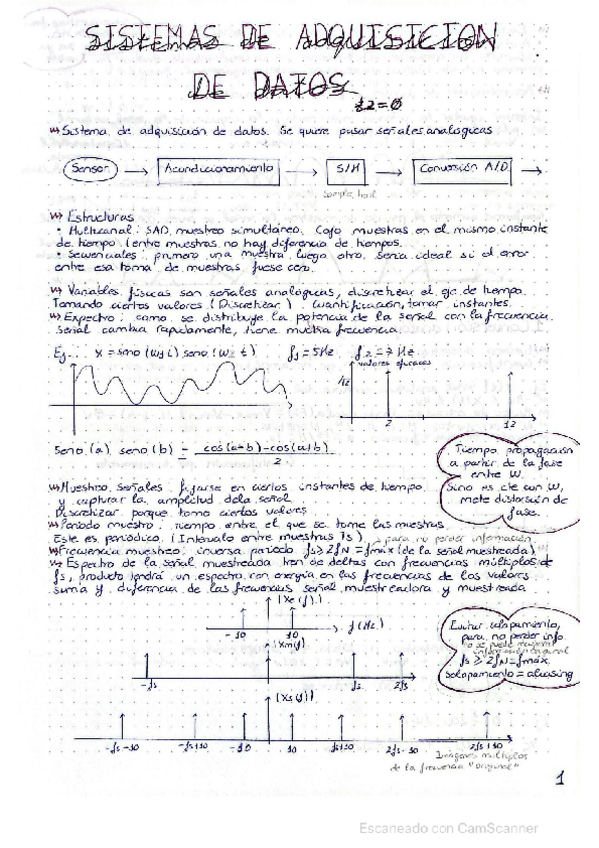 SISTEMAS DE ADQUISICION
DE DATOS
t2=0
Sistema de adquisición de datos. Se quiere pasar señales analógicas
Sensor → Acondicionamiento → S/H → Conversión A/D →
Sample, hold
Estructuras
• Multicanal: SAD muestreo simultáneo. Cojo muestras en el mismo instante
de tiempo (entre muestras no hay diferencia de tiempos.
• Secuenciales: primero una muestra luego otro, seria ideal si el error
entre esa toma de muestras fuese cero.
Variables físicas son señales analógicas, discretizar el eje de tiempo.
Tomando ciertos valores (Discretizar). Cuantificación, tomar instantes.
Espectro: como se distribuye la potencia de la señal con la frecuencia.
señal cambia rapidamente, tiene mucha frecuencia.
Ej... x = seno (w1 t) seno (w2 t) f1 = 5Hz f2 = 7 Hz
valores eficaces
1/√2
2 12
Seno (a) seno (b) = cos(a-b)-cos(a+b)
2
Tiempo propagación
a partir de la fase
entre W.
Sino es cte con W,
mete distorsión de
fase.
Muestreo señales: fijarse en ciertos instantes de tiempo
y capturar la amplitud de la señal
Discretizar porque toma ciertos valores
Periodo muestro: tiempo entre el que se tome las muestras
Este es periódico (Intervalo entre muestras Ts)
para no perder información
Frecuencia muestreo: inversa periodo fs ≥ 2fN = fmáx (de la señal muestreada)
Espectro de la señal muestreada tren de deltas con frecuencias múltiplos de
fs, producto tendrá un espectro con energía en las frecuencias de los valores
suma y diferencia de las frecuencias señal muestreadora y muestreada
|Xe(f)|
-10 10 f(Hz)
|Xm(f)|
-fs fs 2fs
Evitar solapamiento,
para no perder info
no se puede recuperar
información original
fs ≥ 2fN = fmáx
solapamiento = aliasing
|Xs(f)|
-fs-10 -fs+10 -10 10 fs+10 2fs-10 2fs+10
Imágenes múltiplos
de la frecuencia "original"
1
Escaneado con CamScanner